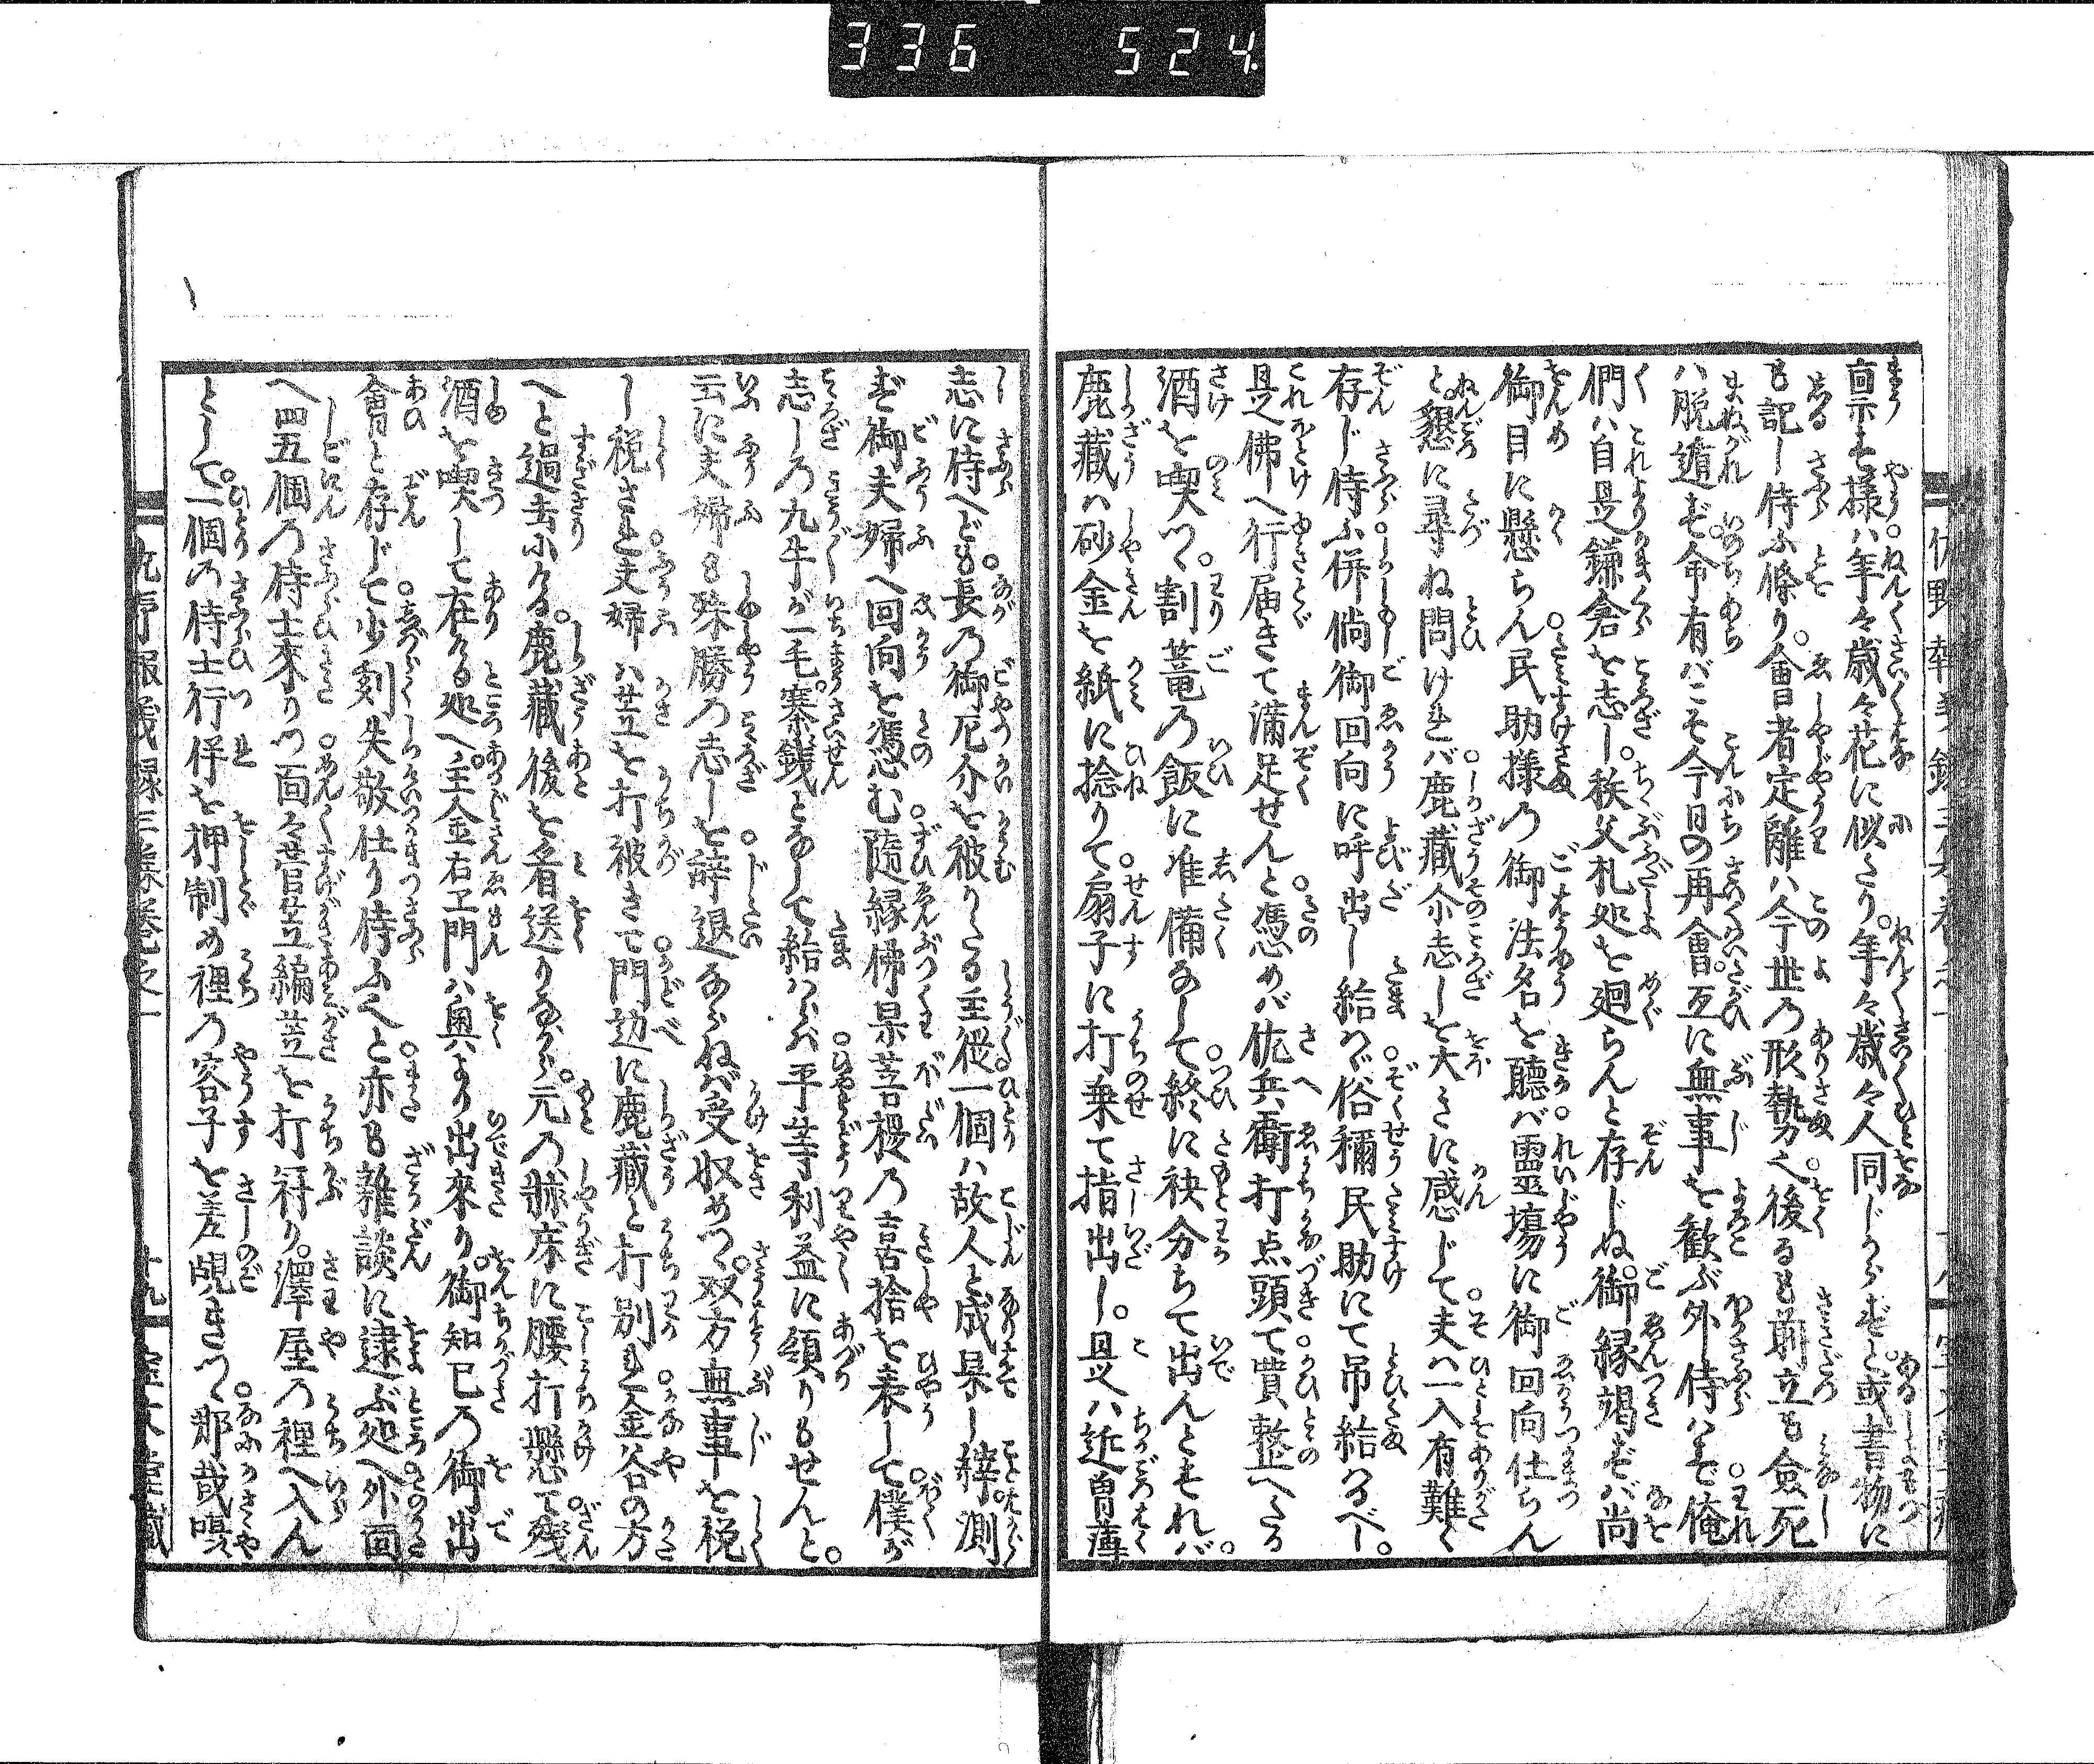 336 524
禀す様ハ年々歳々花に似たり。年々歳々人同じからずと。或書物に
も記し侍ふ條り。會者定離ハ今世の形勢也。後るも前立も僉死
ハ脱遁ず。命有バこそ今日の再會。互に無事を歓ぶ外侍はず。俺
們ハ自是鎌倉を志し。秩父札処を廻らんと存じぬ。御縁竭ずバ尚
御目に懸らん。民助様の御法名を聴バ霊場に御回向仕らん
と。懇に尋ね問けれバ。鹿藏尓志しを大きに感じて。夫ハ一入有難く
存じ侍ふ。併倘御回向に呼出し給ハヾ。俗称民助にて吊給ふべし。
是佛へ行届きて満足せんと。憑めバ佐兵衛打点頭て。買整へたる
酒を喫つヽ。割篭の飯に准備なして。終に袂分ちて出んとすれバ。
鹿藏ハ砂金を紙に捻りて。扇子に打乗て指出し。是ハ近曽薄
志に侍へども。長の御厄介を被りたる主從。一個ハ故人と成果し。縡測
ず御夫婦へ回向を憑む。随縁佛果菩提の喜捨を表して。僕が
志しの九牛が一毛。賽銭となして給ハらバ。平等利益に領りもせんと。
云に夫婦も殊勝の志しを。辞退ならねば受収めつヽ。双方無事を税
し税され。夫婦ハ笠を打被き。門辺に鹿藏と打別れ。金谷の方
へと過去ける。鹿藏後を看送りながら。元の牀床に腰打懸て。残
酒を喫して在ける処へ。主金右エ門ハ奥より出來り。御知己の御出
會と存じて。少刻失敬仕り侍ふと。亦も雑談に逮ぶ処へ。外面
へ四五個の侍士來りつ。面々菅笠編笠を打冠り。澤屋の裡へ入ん
として。一個の侍士行伴を押制め。裡の容子を差覘きつヽ。那哉
九